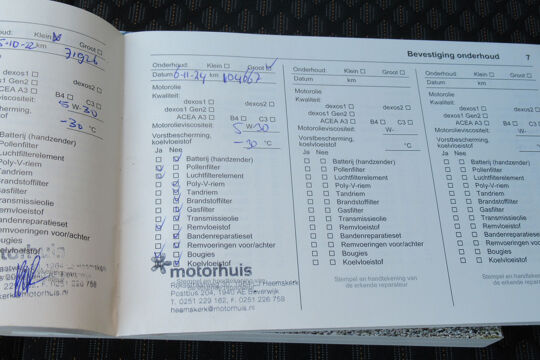 Bevestiging onderhoud 7
Onderhoud: Klein Groot
5-10-22 km 71926
dexos1 dexos2
dexos1 Gen2
ACEA A3 B4 C3
5 W-30
-30 °C
Batterij (handzender)
Pollenfilter
Luchtfilterelement
Poly-V-riem
Tandriem
Brandstoffilter
Gasfilter
Transmissieolie
Remvloeistof
Bandenreparatieset
Remvoeringen voor/achter
Bougies
Koelvloeistof
motorhuis
heemskerk@motorhuis.nl
Onderhoud: Klein Groot
Datum 6-11-24 km 104667
Motorolie
Kwaliteit:
dexos1 dexos2
dexos1 Gen2
ACEA A3 B4 C3
Motorolieviscositeit: 5 W-30
Vorstbescherming, koelvloeistof -30 °C
Ja Nee
Batterij (handzender)
Pollenfilter
Luchtfilterelement
Poly-V-riem
Tandriem
Brandstoffilter
Gasfilter
Transmissieolie
Remvloeistof
Bandenreparatieset
Remvoeringen voor/achter
Bougies
Koelvloeistof
motorhuis
Heemskerk
Postbus 204, 1940 AE Beverwijk
T. 0251 229 162, F. 0251 226 758
heemskerk@motorhuis.nl
Onderhoud: Klein Groot
Datum km
Motorolie
Kwaliteit:
dexos1 dexos2
dexos1 Gen2
ACEA A3 B4 C3
Motorolieviscositeit: W-
Vorstbescherming,
koelvloeistof °C
Ja Nee
Batterij (handzender)
Pollenfilter
Luchtfilterelement
Poly-V-riem
Tandriem
Brandstoffilter
Gasfilter
Transmissieolie
Remvloeistof
Bandenreparatieset
Remvoeringen voor/achter
Bougies
Koelvloeistof
Stempel en handtekening van
de erkende reparateur
Onderhoud: Klein Groot
Datum km
Motorolie
Kwaliteit:
dexos1 dexos2
dexos1 Gen2
ACEA A3 B4 C3
Motorolieviscositeit: W-
Vorstbescherming,
koelvloeistof °C
Ja Nee
Batterij (handzender)
Pollenfilter
Luchtfilterelement
Poly-V-riem
Tandriem
Brandstoffilter
Gasfilter
Transmissieolie
Remvloeistof
Bandenreparatieset
Remvoeringen voor/achter
Bougies
Koelvloeistof
Stempel en handtekening van
de erkende reparateur